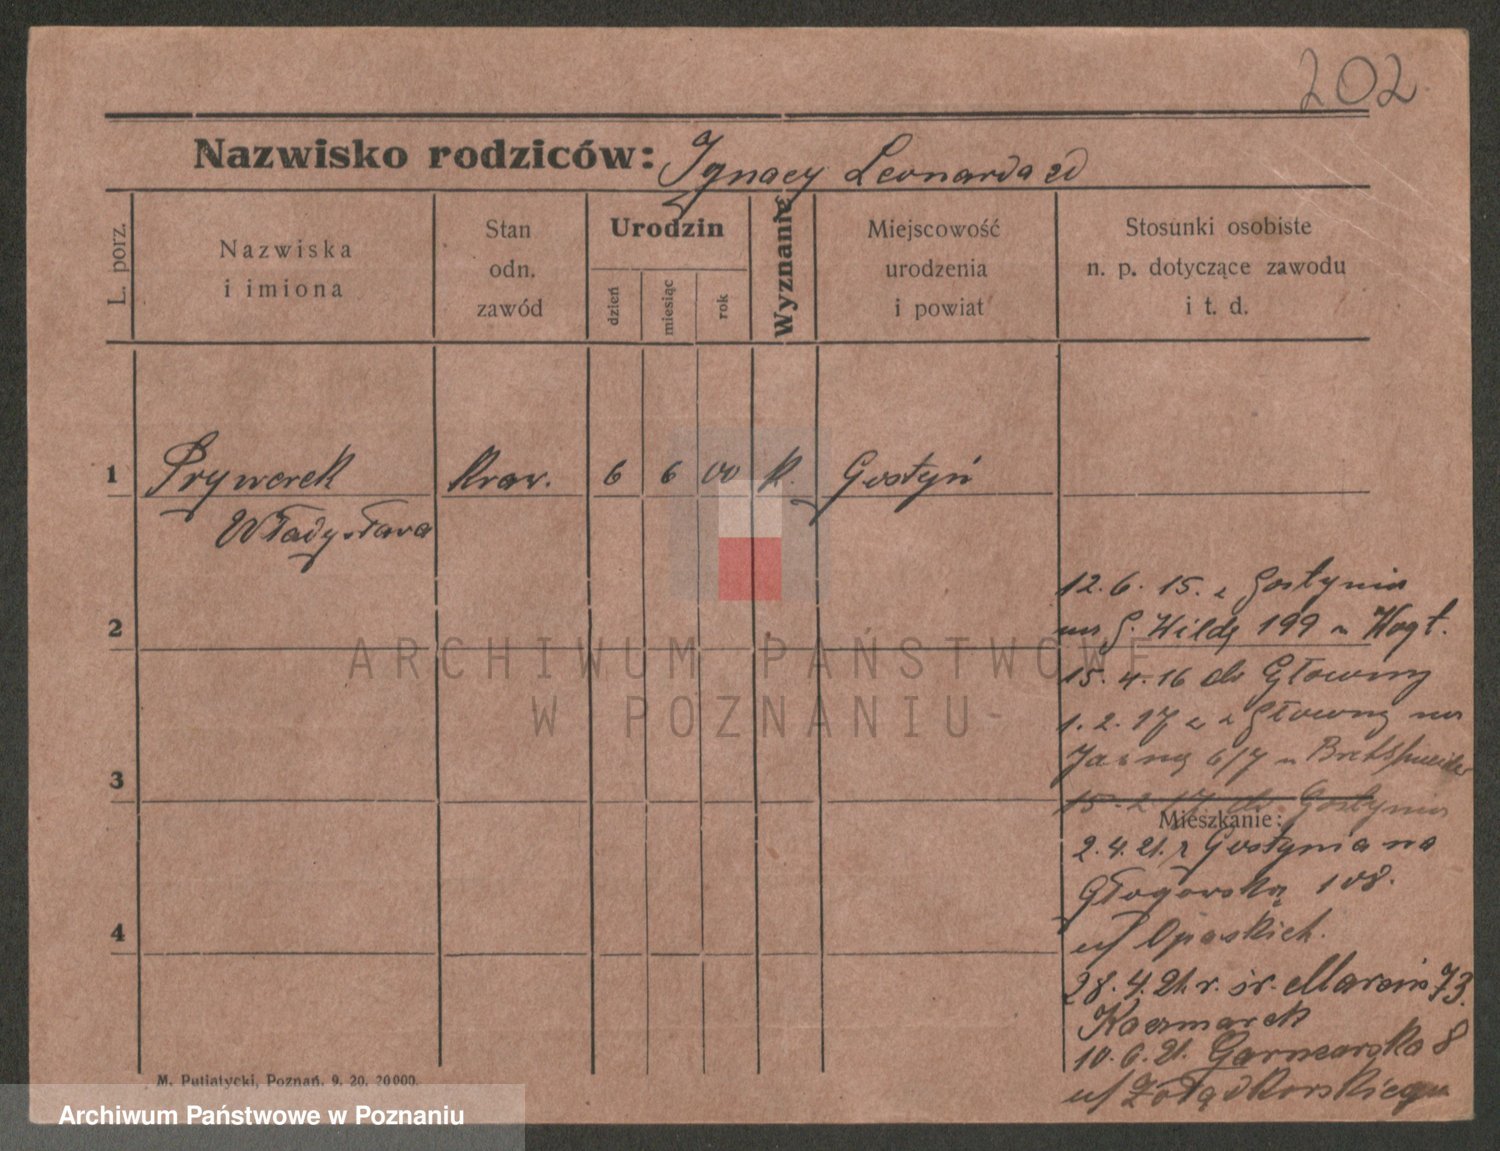 202
Nazwisko rodziców: Ignacy Leonarda
L. porz.
Nazwiska
i imiona
Stan
odn.
zawód
Urodzin
dzień
miesiąc
rok
Wyznanie
Miejscowość
urodzenia
i powiat
Stosunki osobiste
n. p. dotyczące zawodu
i t. d.
1 Prywerek kraw. 6 6 00 k. Gostyń
Władysława
2
3
4
12.6.15. z Gostynia
na G. Wildę 199 Wogt.
15.4.16 do Główny
1.2.17 z Główny na
Jasną 6/7
15.2.17. do Gostynia
Mieszkanie:
2.4.21. z Gostynia na
Głogowską 108.
u/ Opaskich.
28.4.21.r. św. Marcin 73.
Kaczmarek
10.6.21. Garncarska 8
u/ Żołądkowskiego
M. Putiatycki, Poznań. 9. 20. 20000.
ARCHIWUM PAŃSTWOWE
W POZNANIU
Archiwum Państwowe w Poznaniu